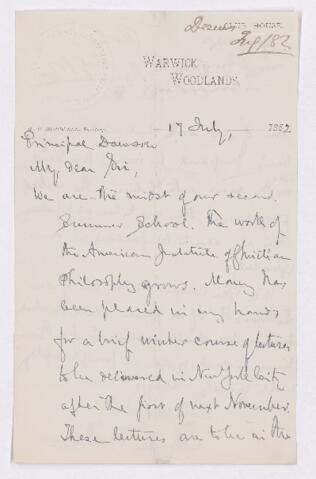 HOUSE
July/82
WARWICK
WOODLANDS,
17 July, 1882.
Principal Dawson
My dear Sir,
We are the midst of our second
Summer School. The work of
the American Institute of Christian
Philosophy grows. Money has
been placed in my hands
for a brief winter course of lectures
to be delivered in New York City
after the first of next November.
These lectures are to be in the